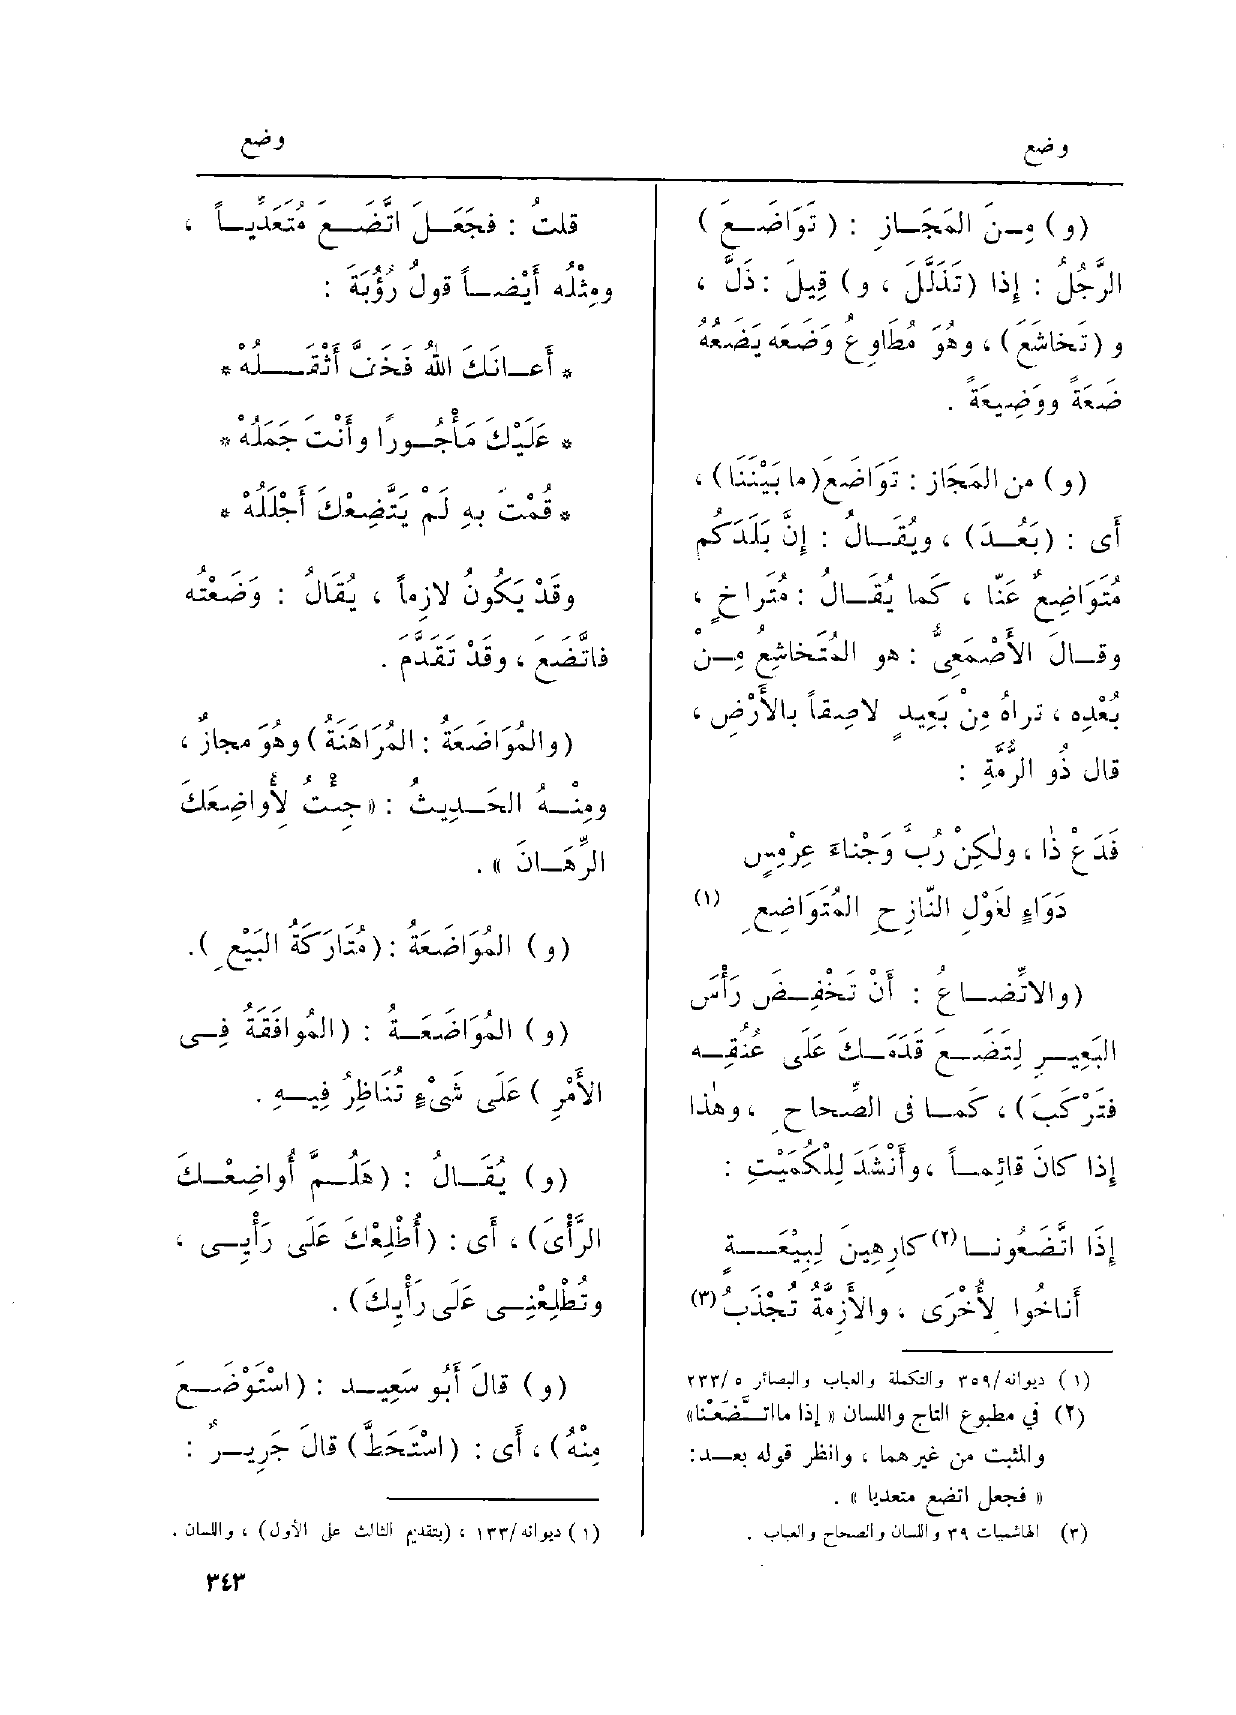 وضع
وضع
(و) مِـنَ المَجَـازِ : (تَوَاضَـعَ)
الرَّجُلُ : إذا (تَذَلَّلَ ، و) قِيلَ : ذَلَّ ،
و (تَخاشَعَ) ، وهُوَ مُطَاوِعُ وَضَعَه يَضَعُهُ
ضَعَةً ووَضِيعَةً .
(و) من المَجَازِ : تَوَاضَعَ (ما بَيْنَنَا) ،
أى : (بَعُـدَ) ، ويُقَـالُ : إنَّ بَلَدَكم
مُتَوَاضِعٌ عَنّا ، كَما يُقَـالُ : مُتَراخٍ ،
وقـالَ الأَصْمَعِىُّ : هو المُتَخاشِعُ مِـنْ
بُعْدِه ، تراهُ مِنْ بَعِيدٍ لاصِقاً بالأَرْضِ ،
قال ذُو الرُّمَّةِ :
فَدَعْ ذَا ، ولٰكِنْ رُبَّ وَجْناءَ عِرْمِسٍ
دَوَاءٍ لغَوْلِ النّازِحِ المُتَوَاضِعِ (١)
(والاتِّضَـاعُ : أَنْ تَخْفِـضَ رَأْسَ
البَعِيـرِ لِتَضَـعَ قَدَمَـكَ عَلَى عُنُقِـه
فتَرْكَبَ) ، كَمـا فى الصِّحاحِ ، وهٰذا
إذا كانَ قائِمـاً ، وأَنْشَدَ لِلْكُمَيْتِ :
إذَا اتَّضَعُونـا (٢) كارِهِينَ لِبِيْعَـــةٍ
أَناخُوا لأُخْرَى ، والأَزِمَّةُ تُجْذَبُ (٣)
(١) ديوانه/٣٥٩ والتكملة والعباب والبصائر ٥/٢٣٣
(٢) في مطبوع التاج واللسان « إذا ما اتَّضَعْنا »
والمثبت من غيرهما ، وانظر قوله بعـد :
« فجعل اتضع متعديا » .
(٣) الهاشميات ٣٩ واللسان والصحاح والعباب .
قلتُ : فجَعَـلَ اتَّضَـعَ مُتَعَدِّيـاً ،
ومِثْلُه أَيْضـاً قولُ رُؤْبَةَ :
* أَعـانَكَ اللهُ فَخَفَّ أَثْقَـــلُه *
* عَلَيْكَ مَأْجُـورًا وأَنْتَ جَمَلُهْ *
* قُمْتَ بِه لَمْ يَتَّضِعْكَ أَجْلَلُهْ *
وقَدْ يَكُونُ لازِماً ، يُقَالُ : وَضَعْتُه
فاتَّضَع ، وقَدْ تَقَدَّم .
(والمُوَاضَعَةُ : المُرَاهَنَةُ) وهُوَ مجازٌ ،
ومِنْـهُ الحَـدِيثُ : « جِئْتُ لأُواضِعَكَ
الرِّهَـانَ » .
(و) المُوَاضَعَةُ : (مُتَارَكَةُ البَيْعِ) .
(و) المُوَاضَعَـةُ : (المُوافَقَةُ فِـى
الأَمْرِ) عَلَى شَىْءٍ تُنَاظِرُ فِيـهِ .
(و) يُقَـالُ : (هَلُـمَّ أُواضِعْـكَ
الرَّأْىَ) ، أى : (أُطْلِعْكَ عَلَى رَأْيِـى ،
وتُطْلِعْنِـى عَلَى رَأْيِكَ) .
(و) قالَ أَبُو سَعِيـد : (اسْتَوْضَـعَ
مِنْهُ) ، أى : (اسْتَحَطَّ) قالَ جَرِيـرٌ :
(١) ديوانه/١٣٣ ، (بتقديم الثالث على الأول) ، واللسان .
٣٤٣